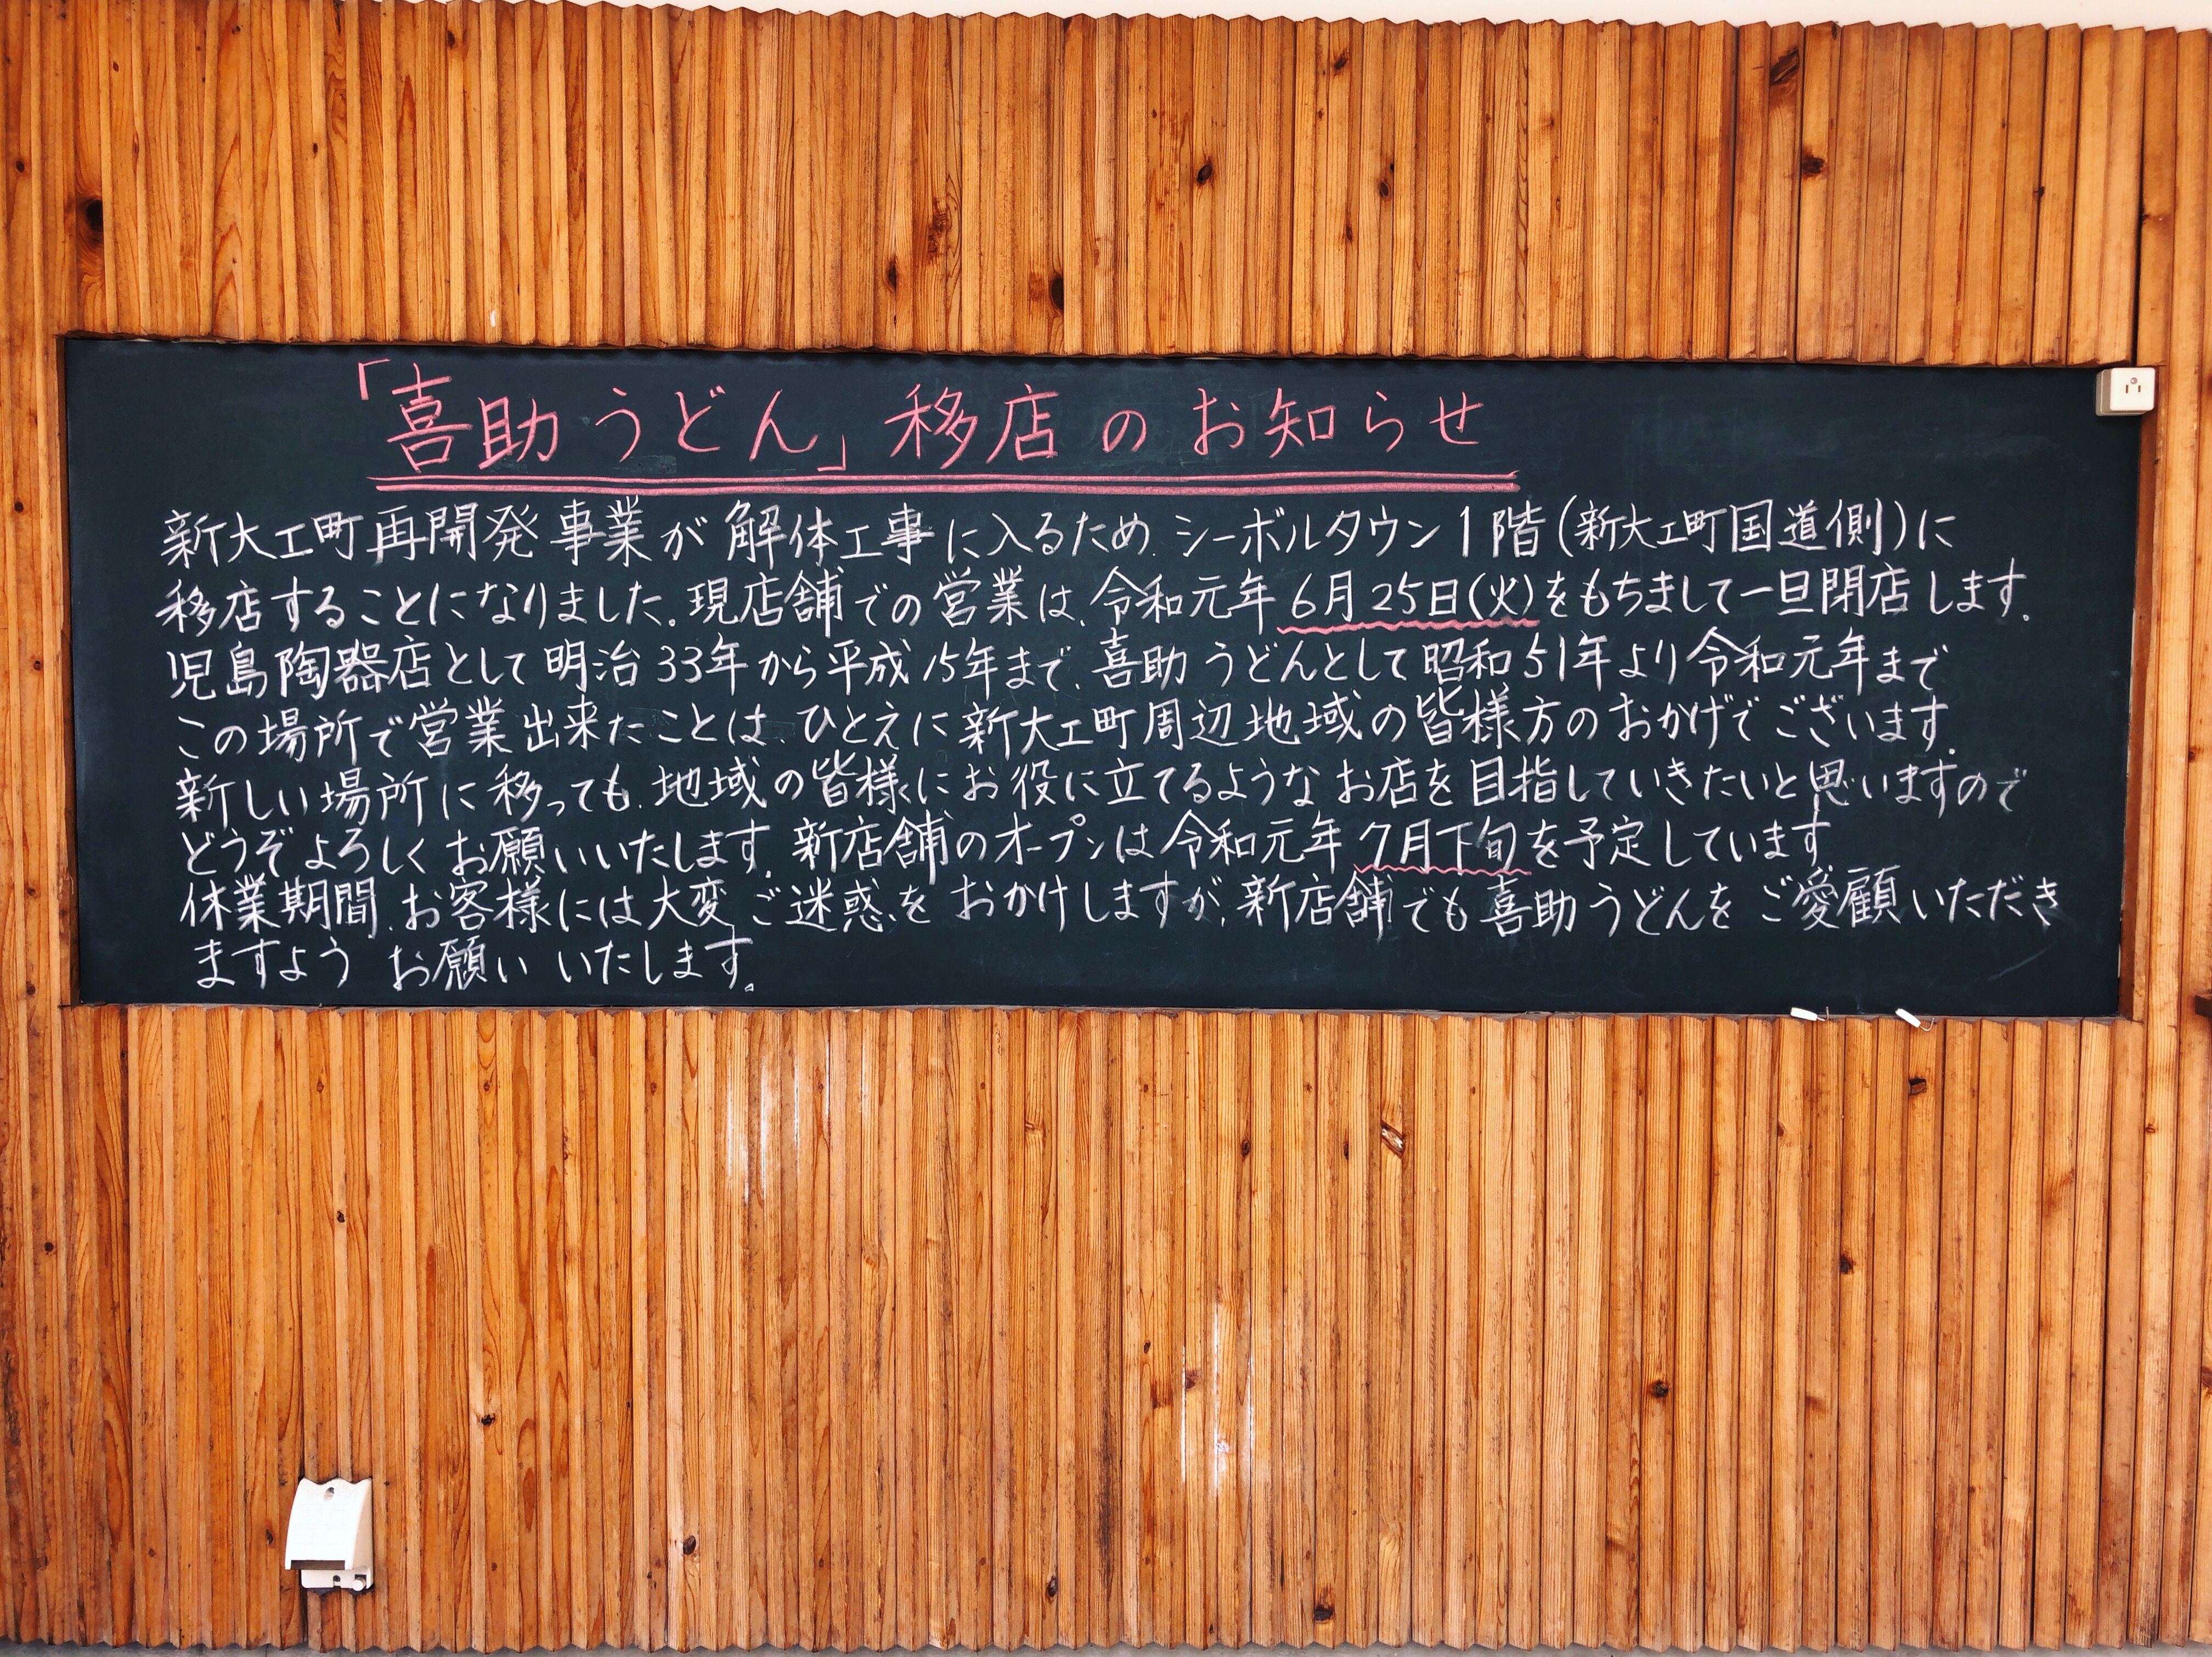 「喜助うどん」移店のお知らせ
新大工町再開発事業が解体工事に入るため、シーボルタウン1階(新大工町国道側)に
移店することになりました。現店舗での営業は、令和元年6月25日(火)をもちまして一旦閉店します。
児島陶器店として明治33年から平成15年まで、喜助うどんとして昭和51年より令和元年まで
この場所で営業出来たことは、ひとえに新大工町周辺地域の皆様方のおかげでございます。
新しい場所に移っても、地域の皆様にお役に立てるようなお店を目指していきたいと思いますので
どうぞよろしくお願いいたします。新店舗のオープンは令和元年7月下旬を予定しています
休業期間、お客様には大変ご迷惑をおかけしますが、新店舗でも喜助うどんをご愛顧いただき
ますようお願いいたします。